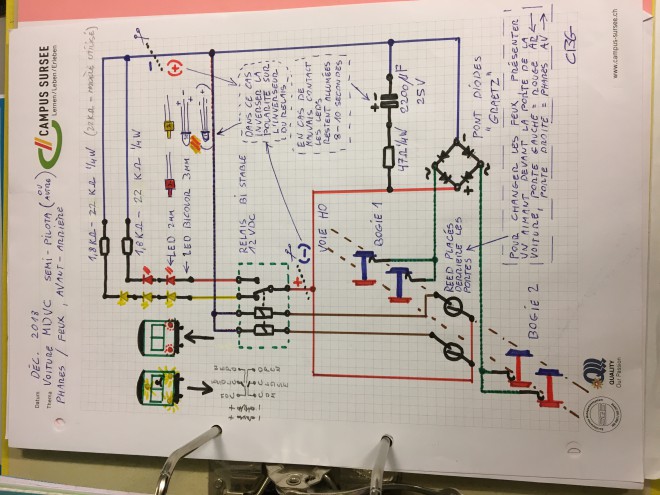 CAMPUS SURSEE
Lernen/Leben/Erleben
www.campus-sursee.ch
Datum DÉC. 2018
Thema VOITURE MDVC SEMI-PILOTA (OU AUTRE)
PHARES / FEUX, AVANT-ARRIÈRE
1,8 KΩ - 22 KΩ 1/4 W
1,8 KΩ - 22 KΩ 1/4 W
LED 2MM
LED BICOLOR 3MM
- (+)
DANS CE CAS
INVERSER LA
POLARITÉ SUR
L'INVERSEUR
DU RELAIS
EN CAS DE
MAUVAIS CONTACT
LES LEDS
RESTENT ALLUMÉES
8-10 SECONDES
RELAIS BI STABLE
12 VDC
+ (-)
2200µF
25V
47Ω 1/4W
PONT DIODES
"GRAETZ"
POUR CHANGER LES FEUX, PRÉSENTER
UN AIMANT DEVANT LA PORTE DE LA
VOITURE, PORTE GAUCHE = ROUGE AR
PORTE DROITE = PHARES AV
VOIE HO
BOGIE 1
REED PLACÉS
DERRIÈRE LES
PORTES
BOGIE 2
QUALITY
Our Passion